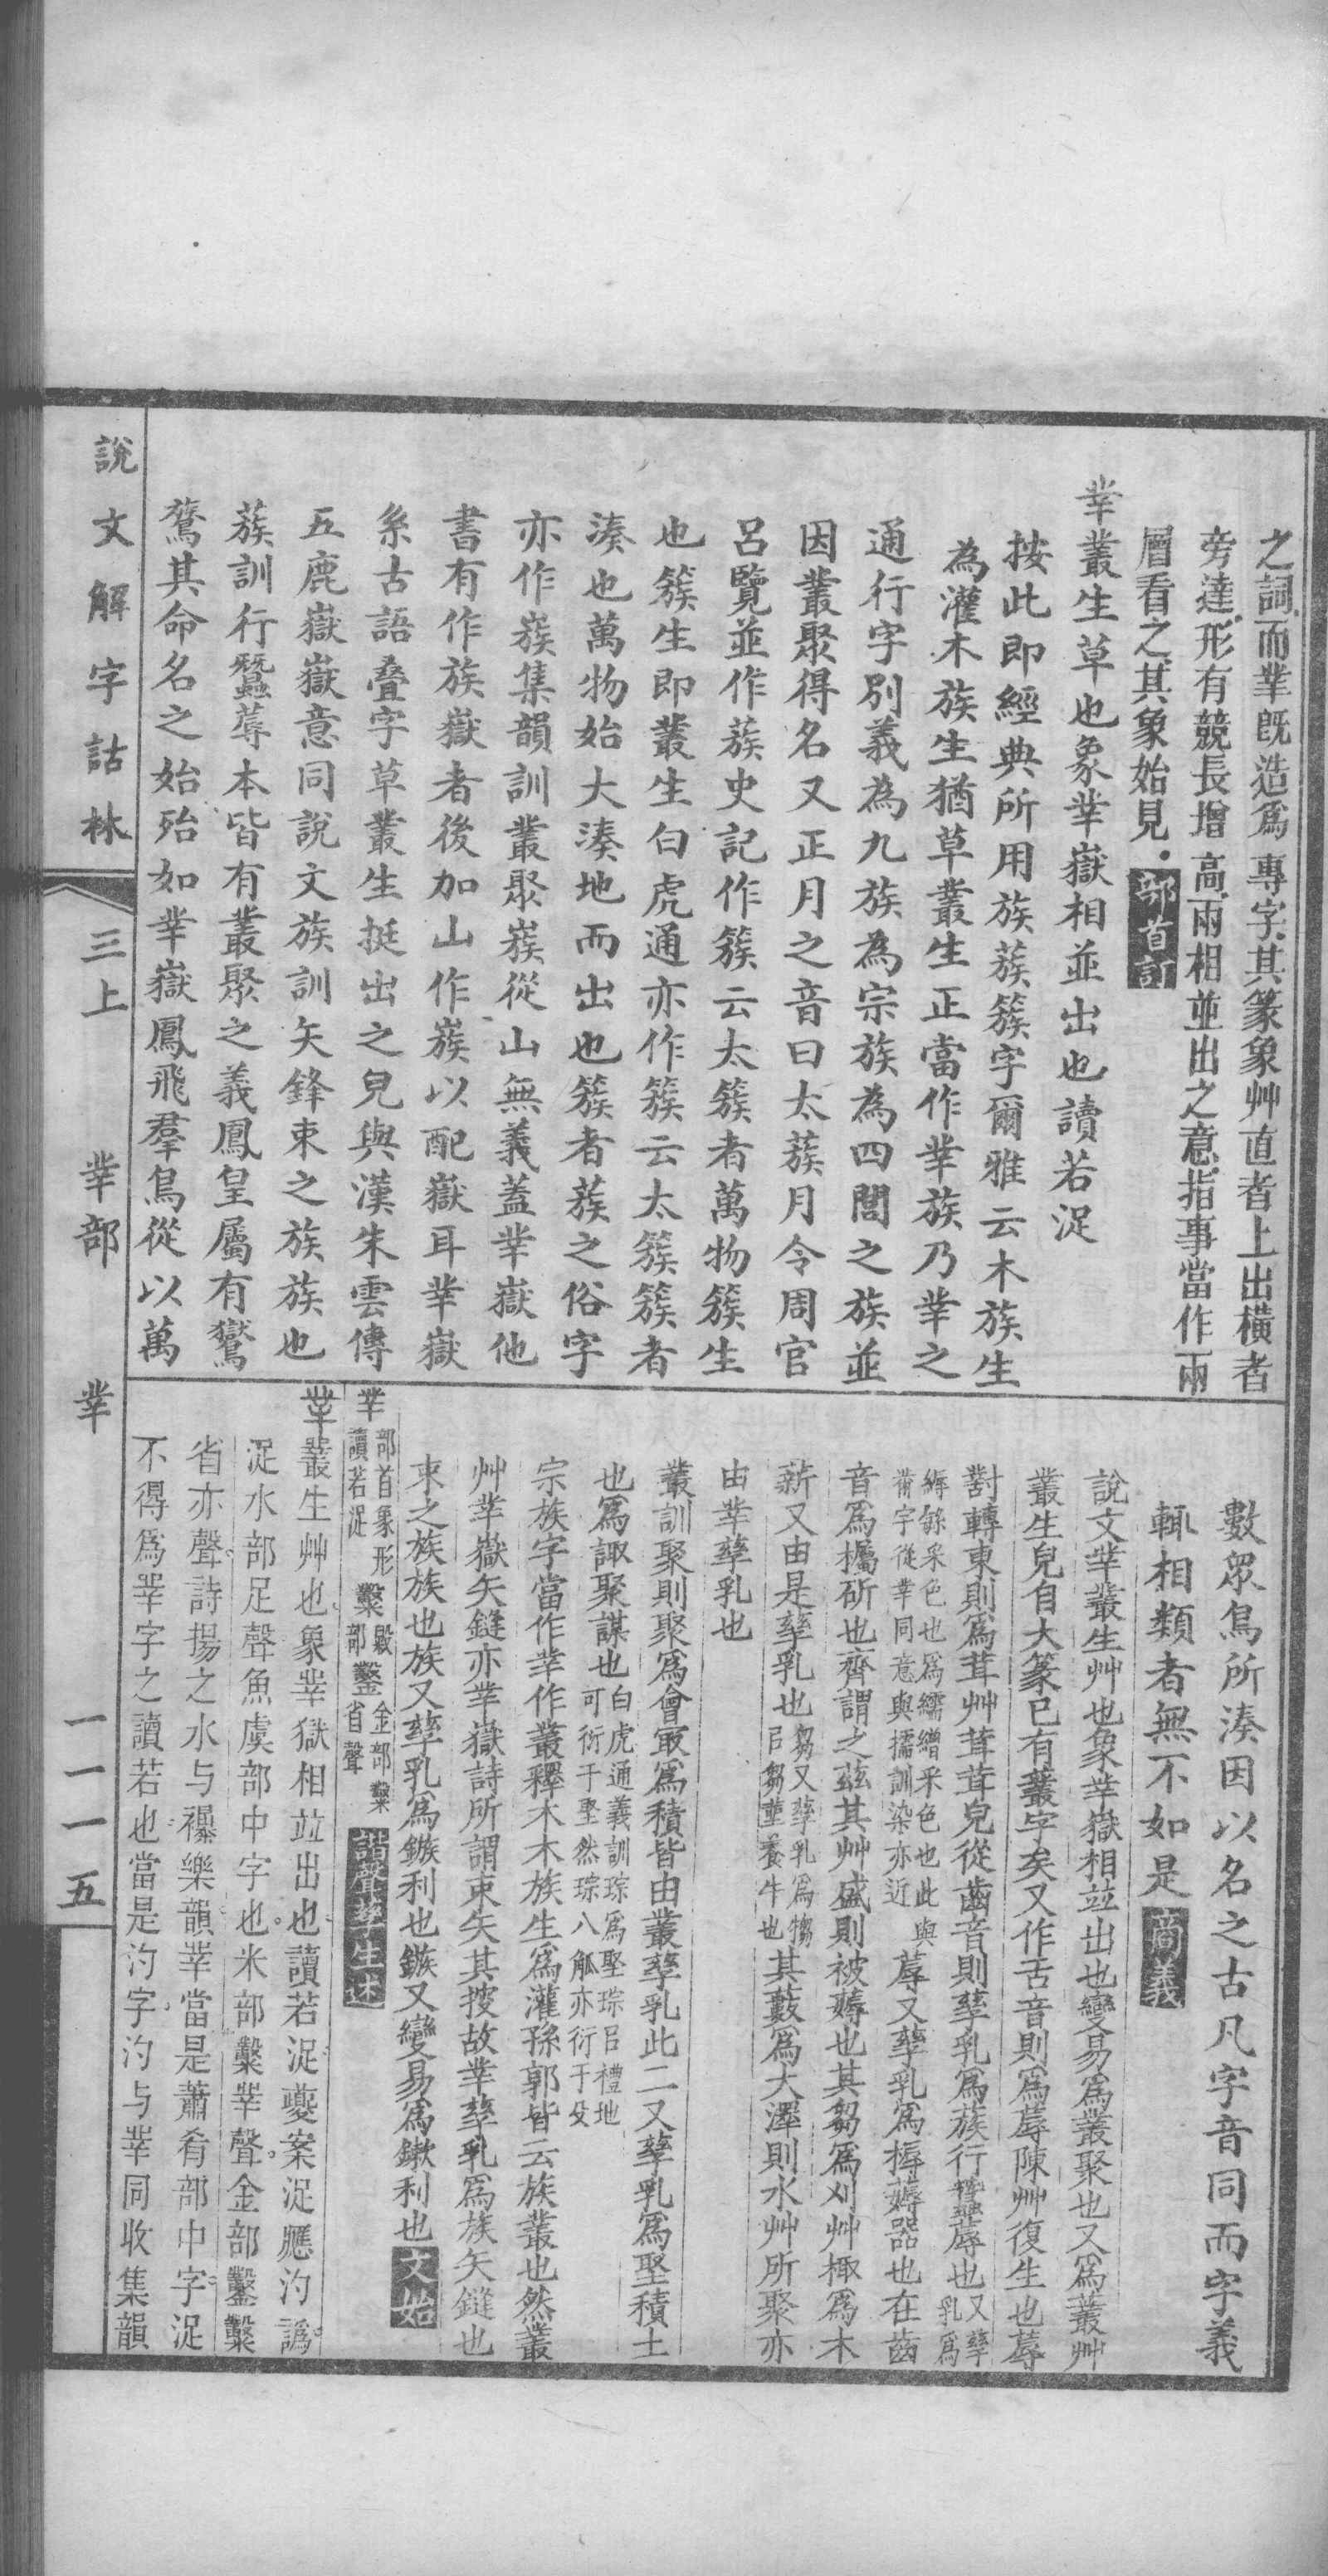 之詞而丵既造爲專字其篆象艸直者上出橫者
旁達形有競長增高兩相並出之意指事當作兩
層看之其象始見．部首訂
丵叢生草也象丵嶽相並出也讀若浞
按此即經典所用族蔟簇字爾雅云木族生
為灌木族生猶草叢生正當作丵族乃丵之
通行字別義為九族為宗族為四閭之族並
因叢聚得名又正月之音曰太蔟月令周官
呂覽並作蔟史記作簇云太簇者萬物簇生
也簇生即叢生白虎通亦作簇云太簇簇者
湊也萬物始大湊地而出也簇者蔟之俗字
亦作嶪集韻訓叢聚嶪從山無義蓋丵嶽他
書有作族嶽者後加山作嶪以配嶽耳丵嶽
系古語疊字草叢生挺出之皃與漢朱雲傳
五鹿嶽嶽意同說文族訓矢鋒束之族族也
蔟訓行蠶蓐本皆有叢聚之義鳳皇屬有鸑
鷟其命名之始殆如丵嶽鳳飛羣鳥從以萬
數眾鳥所湊因以名之古凡字音同而字義
輒相類者無不如是商義
說文丵叢生艸也象丵嶽相竝出也變易爲叢聚也又爲叢艸
叢生皃自大篆已有叢字矣又作舌音則爲蓐陳艸復生也蓐
對轉東則爲茸艸茸茸皃從齒音則孳乳爲蔟行蠶蓐也又孳乳爲
縟繁采色也爲繻繒采色也此與黹字從丵同意與擩訓染亦近蓐又孳乳爲槈薅器也在齒
音爲欘斫也齊謂之茲其艸盛則被薅也其芻爲刈艸棷爲木
薪又由是孳乳也芻又孳乳爲犓㠯芻莝養牛也其藪爲大澤則水艸所聚亦
由丵孳乳也
叢訓聚則聚爲會冣爲積皆由叢孳乳此二又孳乳爲堅積土
也爲諏聚謀也白虎通義訓琮爲聖琮㠯禮地可衍于聖然琮八觚亦衍于殳
宗族字當作丵作叢釋木木族生爲灌孫郭皆云族叢也然叢
艸丵嶽矢鏠亦丵嶽詩所謂束矢其搜故丵孳乳爲族矢鏠也
束之族族也族又孳乳爲鏃利也鏃又變易爲鏉利也文始
丵部首象形讀若浞糳毇部鑿金部糳省聲諧聲孳生述
丵叢生艸也象丵嶽相竝出也讀若浞夔案浞應汋譌
浞水部足聲魚虞部中字也米部糳丵聲金部鑿糳
省亦聲詩揚之水与襮樂韻丵當是蕭肴部中字浞
不得爲丵字之讀若也當是汋字汋与丵同收集韻
說文解字詁林
三上
丵部
丵
一一一五